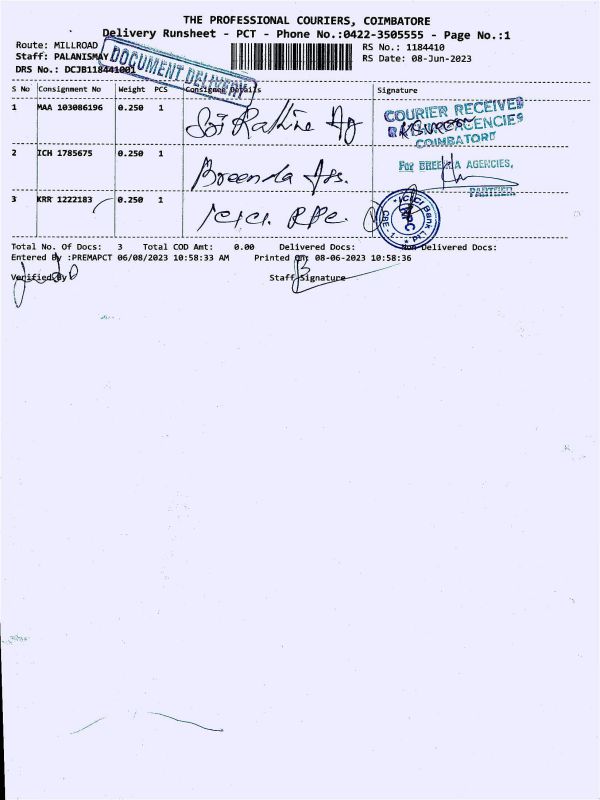 THE PROFESSIONAL COURIERS, COIMBATORE
Delivery Runsheet - PCT - Phone No.:0422-3505555 - Page No.:1
Route: MILLROAD
Staff: PALANISMAY
DRS No.: DCJB118441001
DOCUMENT DELIVERY
RS No.: 1184410
RS Date: 08-Jun-2023
S No Consignment No Weight PCS Consignee Details Signature
1 MAA 103086196 0.250 1 Sri Rathna Ag
COURIER RECEIVED
AGENCIES
COIMBATORE
2 ICH 1785675 0.250 1 Breenda Ags.
For BREENDA AGENCIES,
PARTNER
3 KRR 1222183 0.250 1 ICICI. RPC.
ICICI Bank
RPC
CBE
Total No. Of Docs: 3 Total COD Amt: 0.00 Delivered Docs: Non-Delivered Docs:
Entered By :PREMAPCT 06/08/2023 10:58:33 AM Printed On: 08-06-2023 10:58:36
Verified By Staff Signature